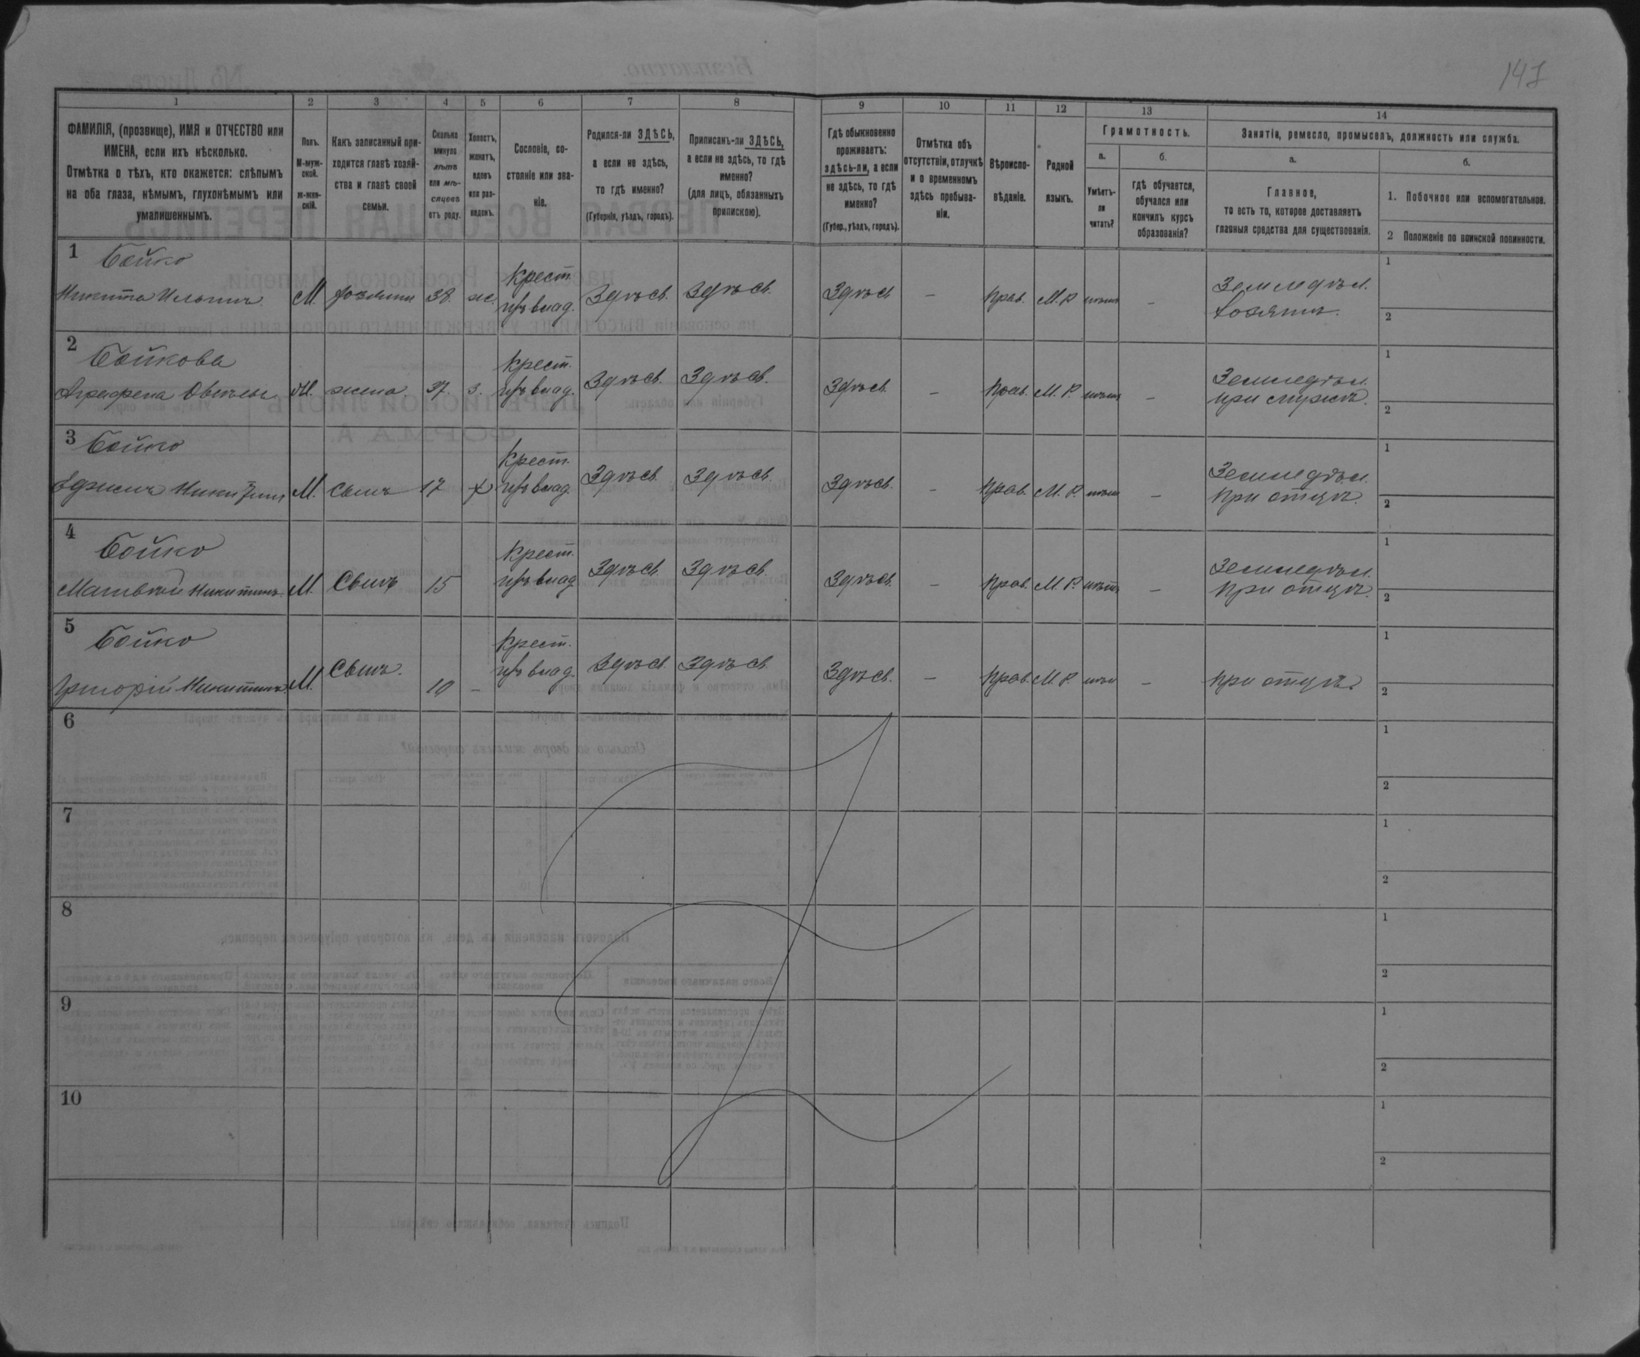 147
1 2 3 4 5 6 7 8 9 10 11 12 13 14
ФАМИЛІЯ, (прозвище), ИМЯ и ОТЧЕСТВО или
ИМЕНА, если ихъ нѣсколько.
Отмѣтка о тѣхъ, кто окажется: слѣпымъ
на оба глаза, нѣмымъ, глухонѣмымъ или
умалишеннымъ.
Полъ.
М-муж-
ской.
ж-жен-
скій.
Какъ записанный при-
ходится главѣ хозяй-
ства и главѣ своей
семьи.
Сколько
минуло
лѣтъ
или мѣ-
сяцевъ
отъ роду.
Холостъ,
женатъ,
вдовъ
или раз-
веденъ.
Сословіе, со-
стояніе или зва-
ніе.
Родился-ли ЗДѢСЬ,
а если не здѣсь,
то гдѣ именно?
(Губернія, уѣздъ, городъ).
Приписанъ-ли ЗДѢСЬ,
а если не здѣсь, то гдѣ
именно?
(для лицъ, обязанныхъ
припискою).
Гдѣ обыкновенно
проживаетъ:
здѣсь-ли, а если
не здѣсь, то гдѣ
именно?
(Губер., уѣздъ, городъ).
Отмѣтка объ
отсутствіи, отлучкѣ
и о временномъ
здѣсь пребыва-
ніи.
Вѣроиспо-
вѣданіе.
Родной
языкъ.
Грамотность.
а.
Умѣетъ-
ли
читать?
б.
гдѣ обучается,
обучался или
кончилъ курсъ
образованія?
Занятіе, ремесло, промыселъ, должность или служба.
а.
Главное,
то есть то, которое доставляетъ
главныя средства для существованія.
б.
1. Побочное или вспомогательное.
2 Положеніе по воинской повинности.
1 Бойко
Никита Ильинъ М. хозяинъ 38 ж. Крест. изъ влад. Здѣсь Здѣсь Здѣсь – Прав. М.Р. нѣтъ – Земледѣл. хозяинъ. 1 2
2 Бойкова
Агрефена Ж. жена 37 з. Крест. изъ влад. Здѣсь Здѣсь. Здѣсь – Прав. М.Р. нѣтъ – Земледѣл. при мужѣ. 1 2
3 Бойко
Никитинъ М. Сынъ 17 х Крест. изъ влад. Здѣсь Здѣсь. Здѣсь. – Прав. М.Р. нѣтъ – Земледѣл. при отцѣ. 1 2
4 Бойко
Матвѣй Никитинъ М. Сынъ 15 Крест. изъ влад. Здѣсь Здѣсь. Здѣсь. – Прав. М.Р. нѣтъ – Земледѣл. при отцѣ. 1 2
5 Бойко
Григорій Никитинъ М. Сынъ. 10 – Крест. изъ влад. Здѣсь Здѣсь Здѣсь. – Прав. М.Р. нѣтъ – при отцѣ. 2
6 1 2
7 1 2
8 1 2
9 1 2
10 1 2